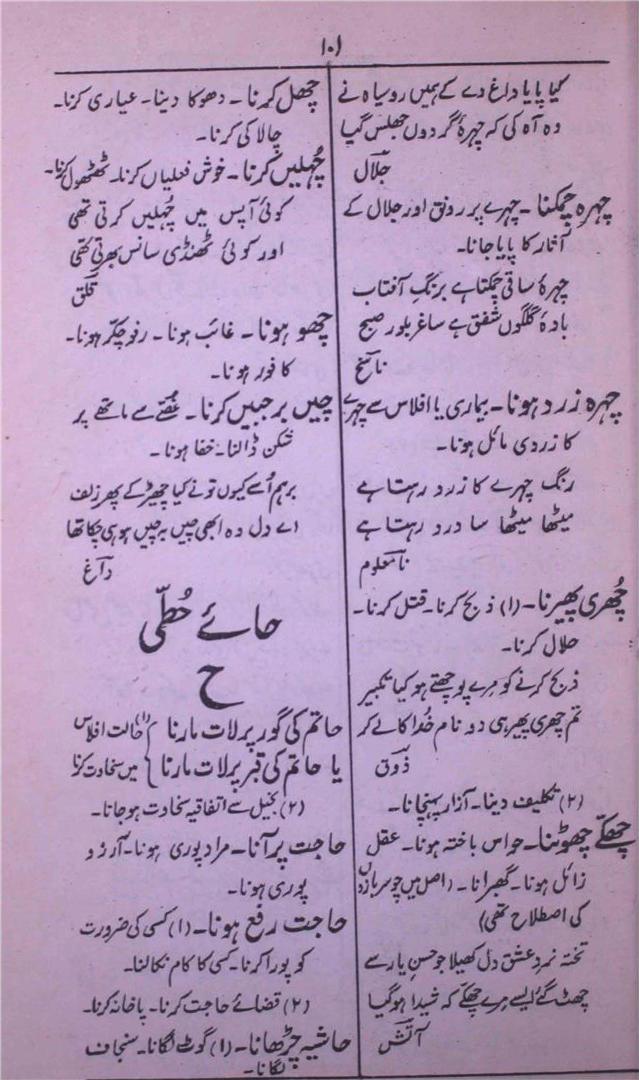 ۱۰۱
کیا پایا داغ دے کے ہمیں روسیاہ نے
وہ آہ کی کہ چہرۂ گردوں جھلس گیا
جلال
چہرہ چمکنا۔ چہرے پر رونق اور جلال کے
آثار کا پایا جانا۔
چہرۂ ساقی چمکتا ہے برنگِ آفتاب
بادۂ گلگوں شفق ہے ساغر بلور صبح
ناسخ
چہرہ زرد ہونا۔ بیماری یا افلاس سے چہرے
کا زردی مائل ہونا۔
رنگ چہرے کا زرد رہتا ہے
میٹھا میٹھا سا درد رہتا ہے
نامعلوم
چُھری پھیرنا۔ (۱) ذبح کرنا۔ قتل کرنا۔
حلال کرنا۔
ذبح کرنے کو مرے پوچھتے ہو کیا تکبیر
تم چھری پھیر ہی دو نام خُدا کا لے کر
ذوق
(۲) تکلیف دینا۔ آزار پہنچانا۔
چھکّے چھوٹنا۔ حواس باختہ ہونا۔ عقل
زائل ہونا۔ گھبرانا۔ (اصل میں چوسر بازوں
کی اصطلاح تھی)
تختہ نردِ عشق دل کھیلا جو حسنِ یار سے
چھٹ گئے ایسے مرے چھکے کہ شیدا ہو گیا
آتش
چھل کرنا۔ دھوکا دینا۔ عیاری کرنا۔
چالاکی کرنا۔
چُہلیں کرنا۔ خوش فعلیاں کرنا۔ ٹھٹھول کرنا۔
کوئی آپس میں چُہلیں کرتی تھی
اور کوئی ٹھنڈی سانس بھرتی تھی
قلق
چھو ہونا۔ غائب ہونا۔ رفو چکر ہونا۔
کافور ہونا۔
چیں برجبیں کرنا۔ غصّے سے ماتھے پر
شکن ڈالنا۔ خفا ہونا۔
برہم اُسے کیوں تو نے کیا چھیڑ کے پھر زلف
اے دل وہ ابھی چیں بہ جبیں ہو ہی چکا تھا
داغ
حائے حُطّی
ح
حاتم کی گور پر لات مارنا (۱) حالت افلاس
یا حاتم کی قبر پر لات مارنا میں سخاوت کرنا
(۲) بخیل سے اتفاقیہ سخاوت ہو جانا۔
حاجت بر آنا۔ مراد پوری ہونا۔ آرزو
پوری ہونا۔
حاجت رفع ہونا۔ (۱) کسی کی ضرورت
کو پورا کرنا۔ کسی کا کام نکالنا۔
(۲) قضائے حاجت کرنا۔ پاخانہ کرنا۔
حاشیہ چڑھانا۔ (۱) گوٹ لگانا۔ سنجاف
لگانا۔